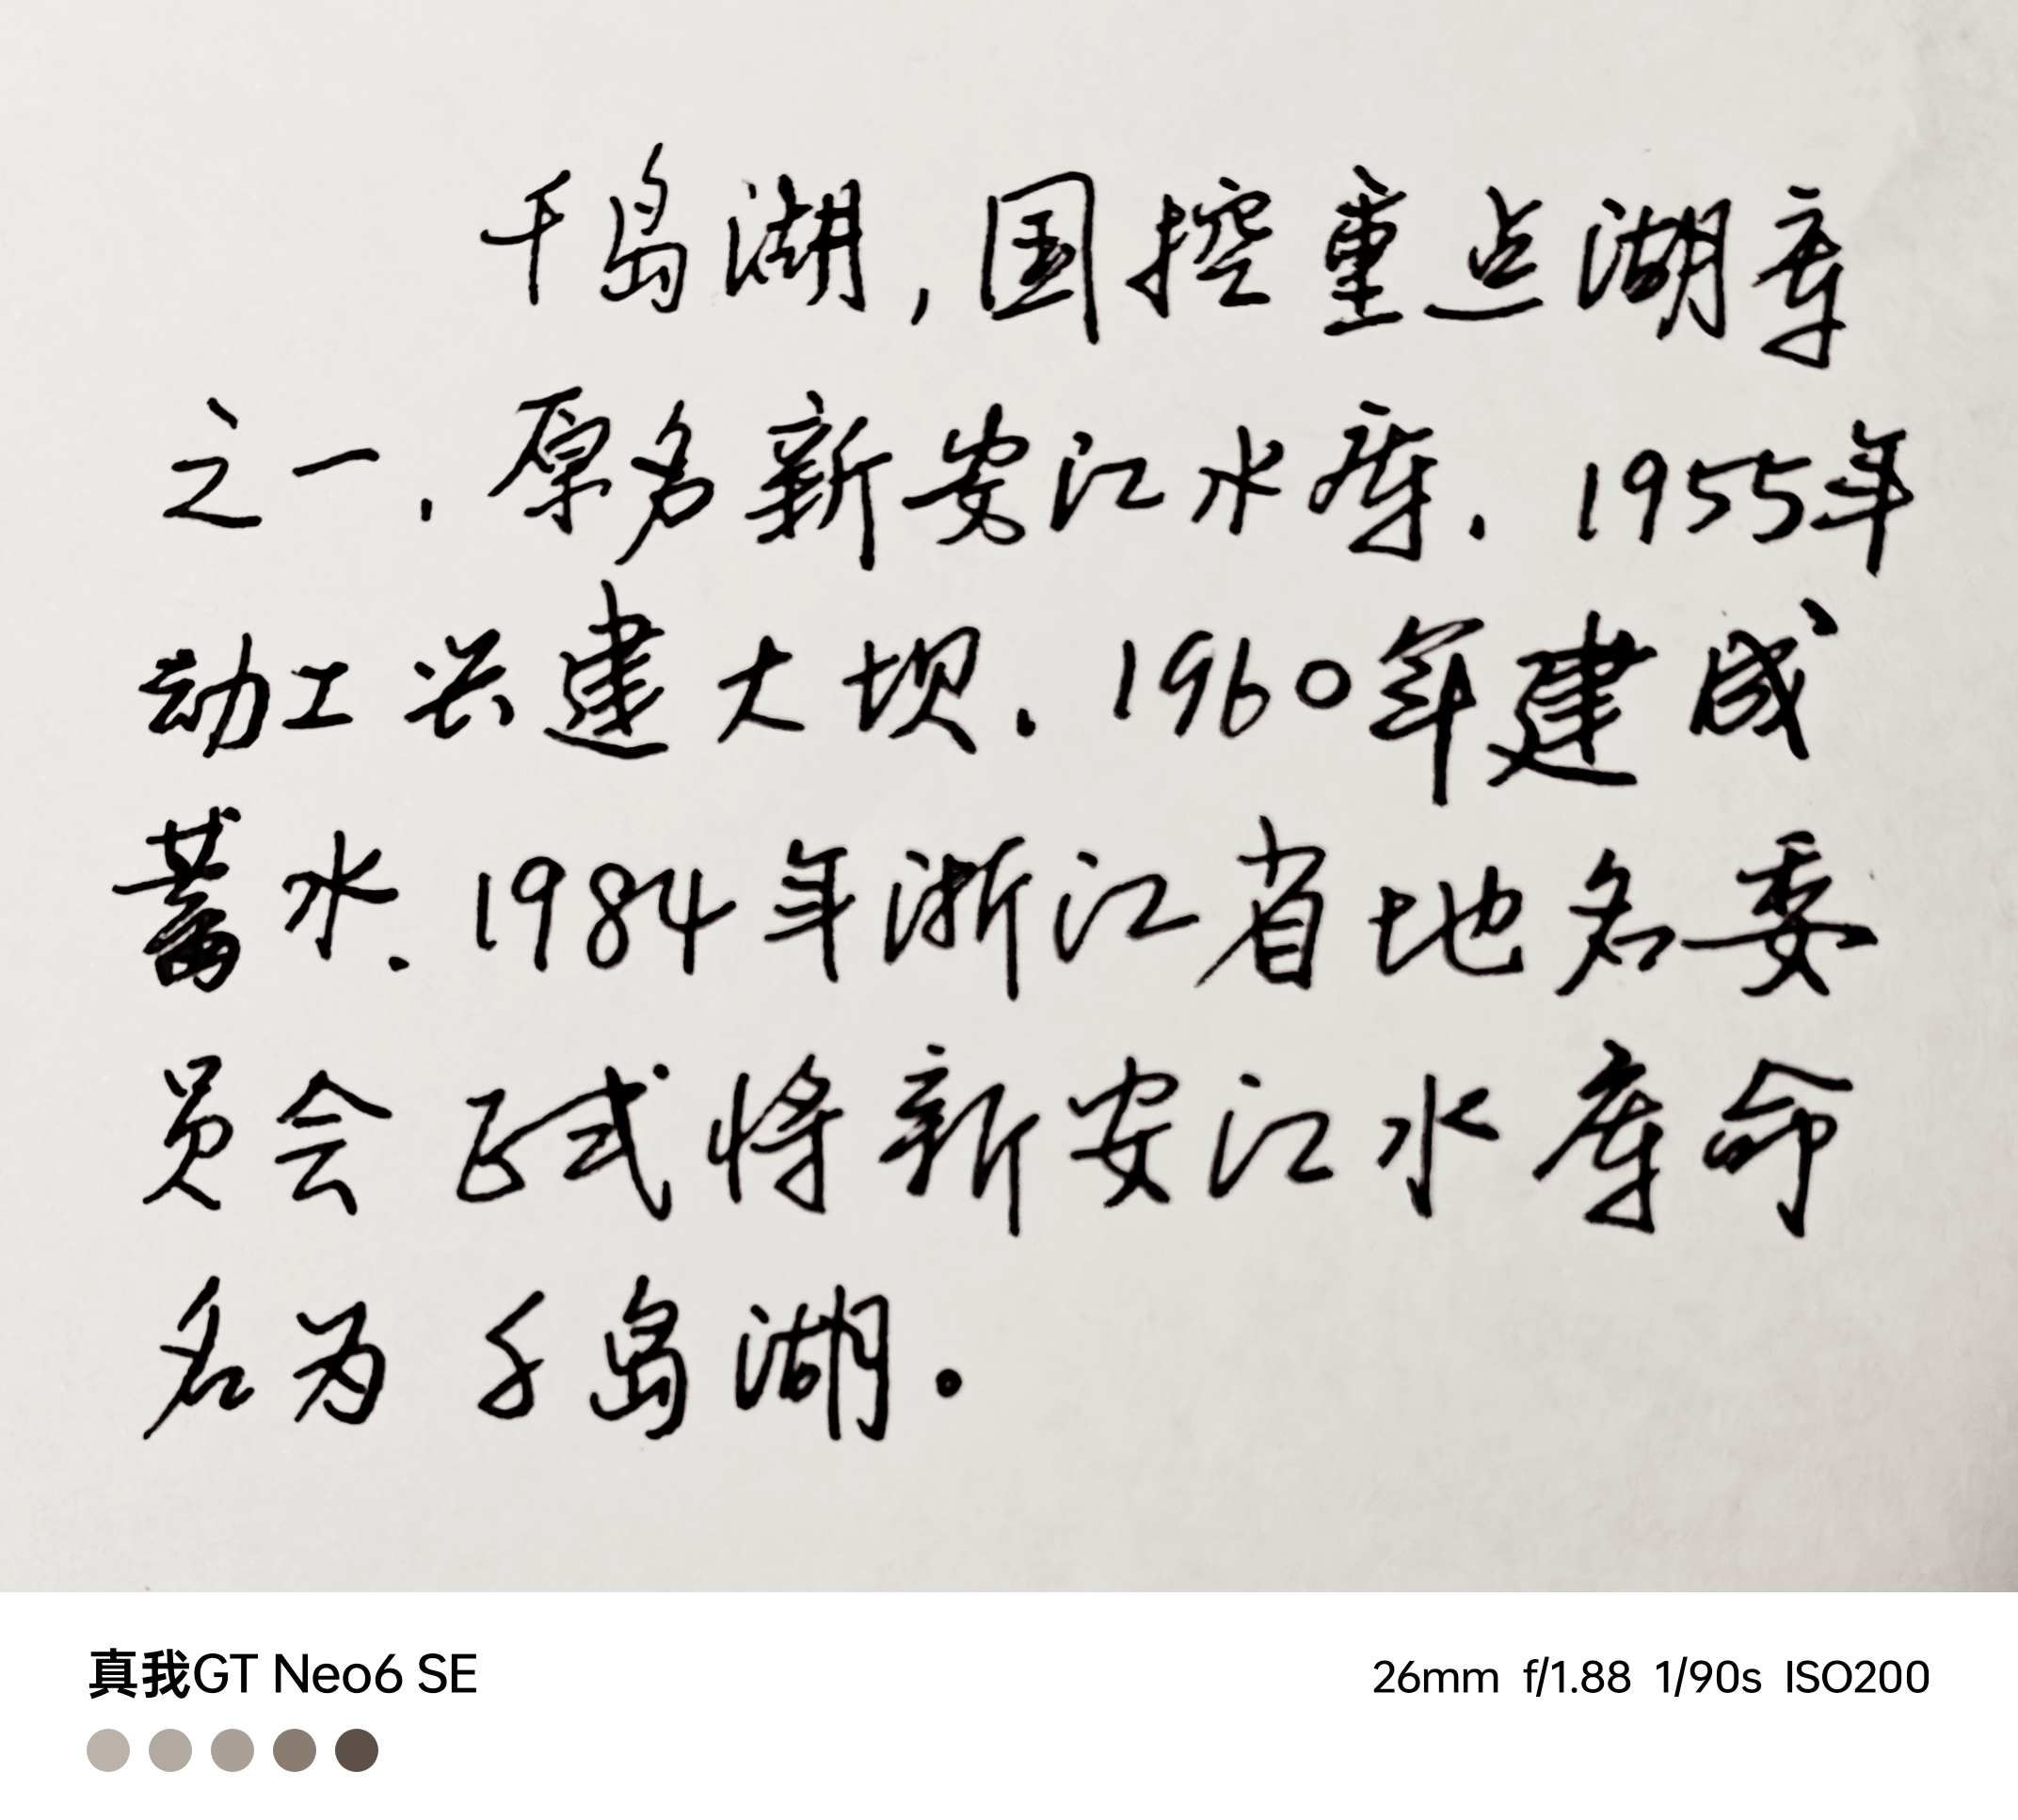 千岛湖，国控重点湖库
之一，原名新安江水库，1955年
动工兴建大坝，1960年建成
蓄水，1984年浙江省地名委
员会正式将新安江水库命
名为千岛湖。
真我GT Neo6 SE
26mm f/1.88 1/90s ISO200